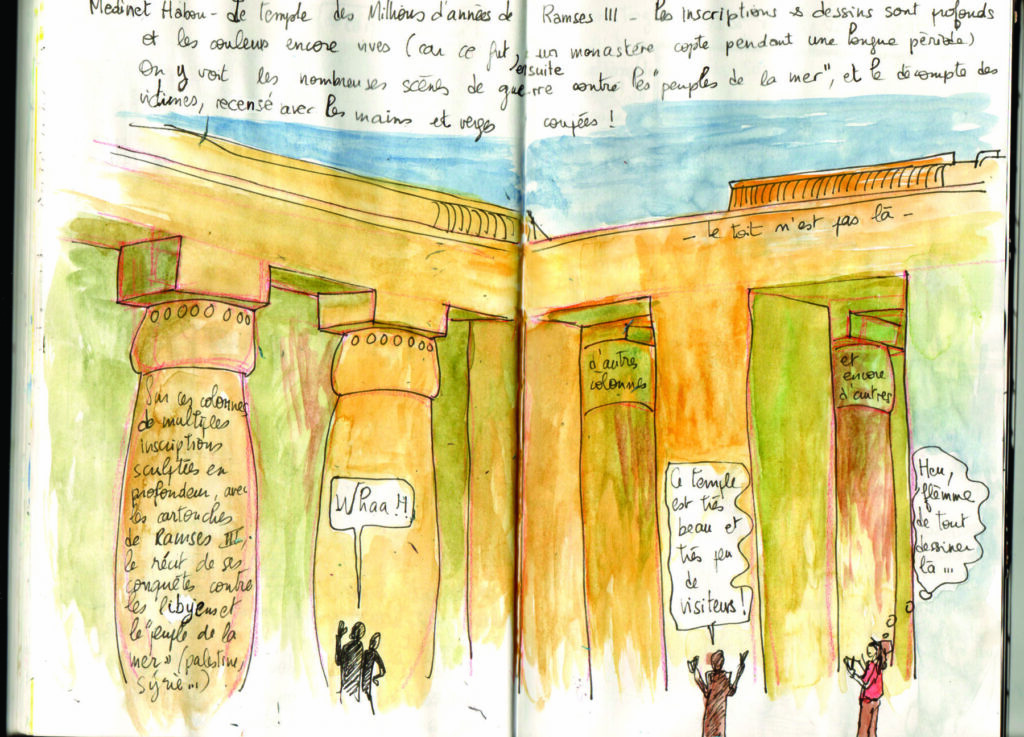 Medinet Habou - Le temple des Millions d'années de Ramses III - Les inscriptions & dessins sont profonds
et les couleurs encore vives (car ce fut ensuite un monastère copte pendant une longue période)
On y voit les nombreuses scènes de guerre contre les "peuples de la mer", et le décompte des
victimes, recensé avec les mains et verges coupées !
- le toit n'est pas là -
Sur ces colonnes
de multiples
inscriptions
sculptées en
profondeur, avec
les cartouches
de Ramses III,
le récit de ses
conquêtes contre
les libyens et
le "peuple de la
mer" (palestine,
Syrie...)
Whaa !!
d'autres
colonnes
Ce temple
est très
beau et
très peu
de
visiteurs !
et
encore
d'autres
Heu,
flemme
de tout
dessiner
là ...